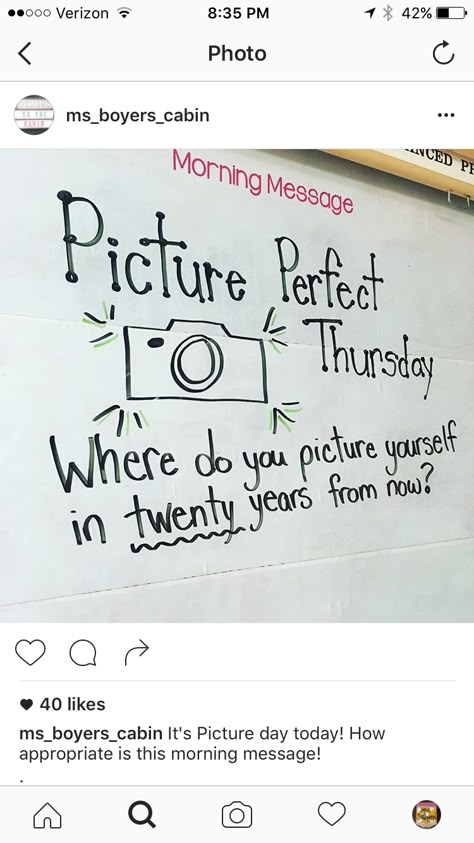 Verizon
8:35 PM
42%
Photo
ms_boyers_cabin
Morning Message
Picture Perfect
Thursday
Where do you picture yourself
in twenty years from now?
40 likes
ms_boyers_cabin It's Picture day today! How
appropriate is this morning message!
.